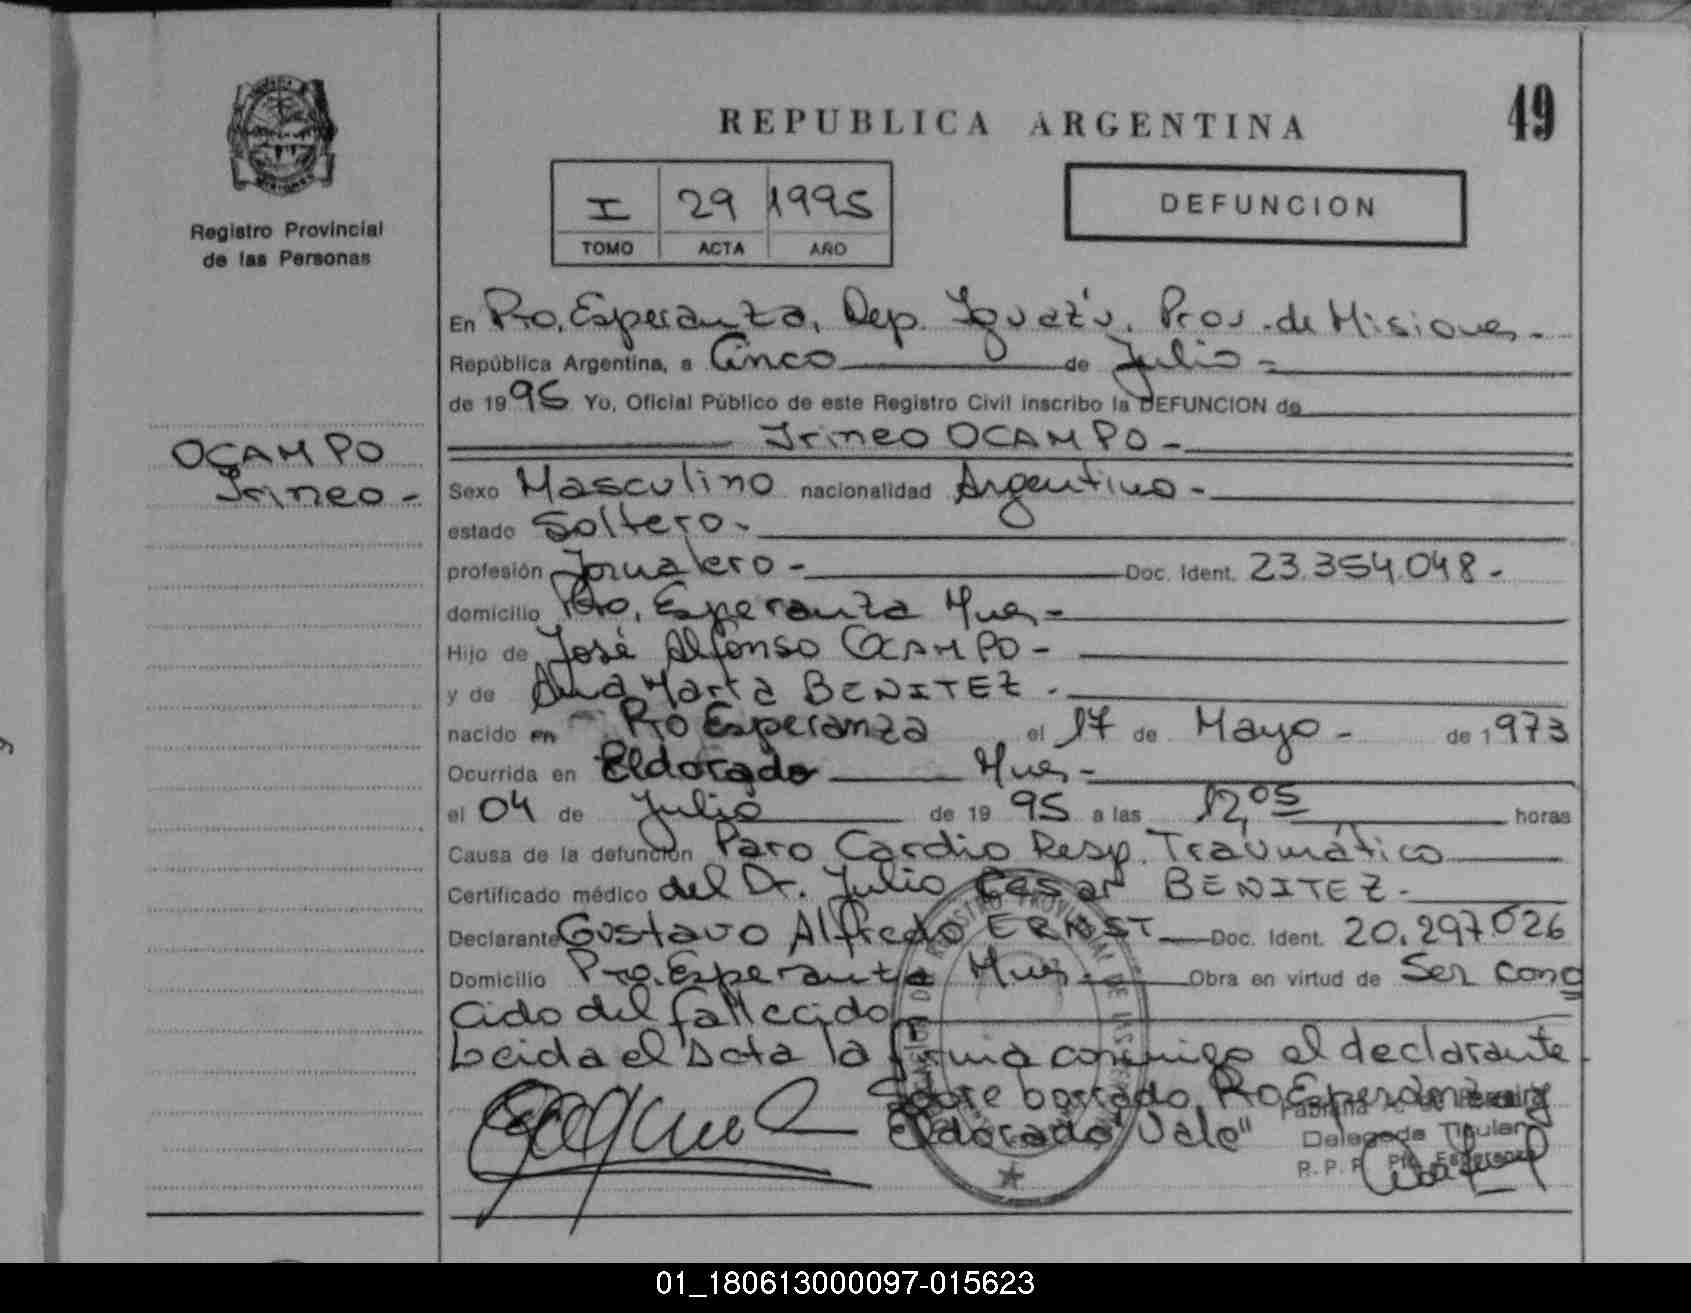 REPUBLICA ARGENTINA
49
Registro Provincial
de las Personas
I 29 1995
TOMO ACTA AÑO
DEFUNCION
OCAMPO
Irineo -
En Pto. Esperanza, Dep. Iguazú, Prov. de Misiones -
República Argentina, a Cinco de Julio -
de 1995 Yo, Oficial Público de este Registro Civil inscribo la DEFUNCION de
Irineo OCAMPO -
Sexo Masculino nacionalidad Argentino -
estado Soltero -
profesión Jornalero - Doc. Ident. 23.354.048 -
domicilio Pto. Esperanza Mnes -
Hijo de José Alfonso OCAMPO -
y de Ana Marta BENITEZ -
nacido en Pto Esperanza el 17 de Mayo - de 1973
Ocurrida en Eldorado Mnes -
el 04 de Julio de 1995 a las 12,05 horas
Causa de la defunción Paro Cardio Resp. Traumático
Certificado médico del Dr. Julio Cesar BENITEZ -
Declarante Gustavo Alfredo ERNST Doc. Ident. 20.297.026
Domicilio Pto. Esperanza Mnes - Obra en virtud de Ser cono
cido del fallecido
Leida el Acta la firma conmigo el declarante
Sobre borrado Pto Esperanza y
Eldorado "Vale"
Delegada Titular
R.P.P. Pto. Esperanza
01_180613000097-015623